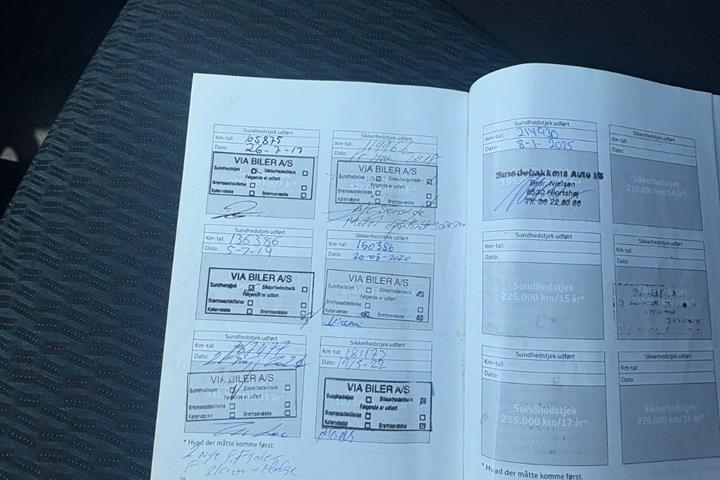 Sundhedstjek udført
Km-tal: 105875
Dato: 26-7-17
VIA BILER A/S
Sundhedstjek Sikkerhedscheck
Følgende er udført
Bremseadskillelse
Kølervæske Bremsevæske
Sikkerhedstjek udført
Km-tal: 119966
Dato: 2018
VIA BILER A/S
Sundhedstjek Sikkerhedscheck
Følgende er udført
Bremseadskillelse
Kølervæske Bremsevæske
Motor
Sundhedstjek udført
Km-tal: 136386
Dato: 5-7-19
VIA BILER A/S
Sundhedstjek Sikkerhedscheck
Følgende er udført
Bremseadskillelse
Kølervæske Bremsevæske
Sikkerhedstjek udført
Km-tal: 150386
Dato: 20-08-2020
VIA BILER A/S
Sundhedstjek Sikkerhedscheck
Følgende er udført
Bremseadskillelse
Kølervæske Bremsevæske
Sundhedstjek udført
Km-tal:
Dato:
VIA BILER A/S
Sundhedstjek Sikkerhedscheck
Følgende er udført
Bremseadskillelse
Kølervæske Bremsevæske
Sikkerhedstjek udført
Km-tal: 181173
Dato: 19/5-22
VIA BILER A/S
Sundhedstjek Sikkerhedscheck
Følgende er udført
Bremseadskillelse
Kølervæske Bremsevæske
* Hvad der måtte komme først.
2 Nye F.
F.
Sundhedstjek udført
Km-tal: 214930
Dato: 8-1-2025
Auto I/S
Nielsen
8530 Hjortshøj
Tlf. 86 22 83 66
Sikkerhedstjek udført
Km-tal:
Dato:
Sikkerhedstjek
210.000 km/14 år*
Sundhedstjek udført
Km-tal:
Dato:
Sundhedstjek
225.000 km/15 år*
Sikkerhedstjek udført
Km-tal:
Dato:
Sundhedstjek udført
Km-tal:
Dato:
Sundhedstjek
255.000 km/17 år*
Sikkerhedstjek udført
Km-tal:
Dato:
Sikkerhedstjek
270.000 km/18 år*
* Hvad der måtte komme først.